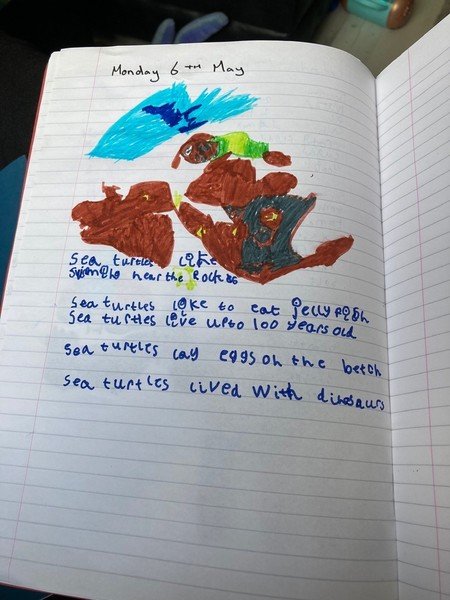 Monday 6TH May
Sea turtles like
near the Rockes
Sea turtles like to eat jelly fish
Sea turtles live upto 100 years old
Sea turtles lay eggs on the betch
Sea turtles lived with dinosaurs